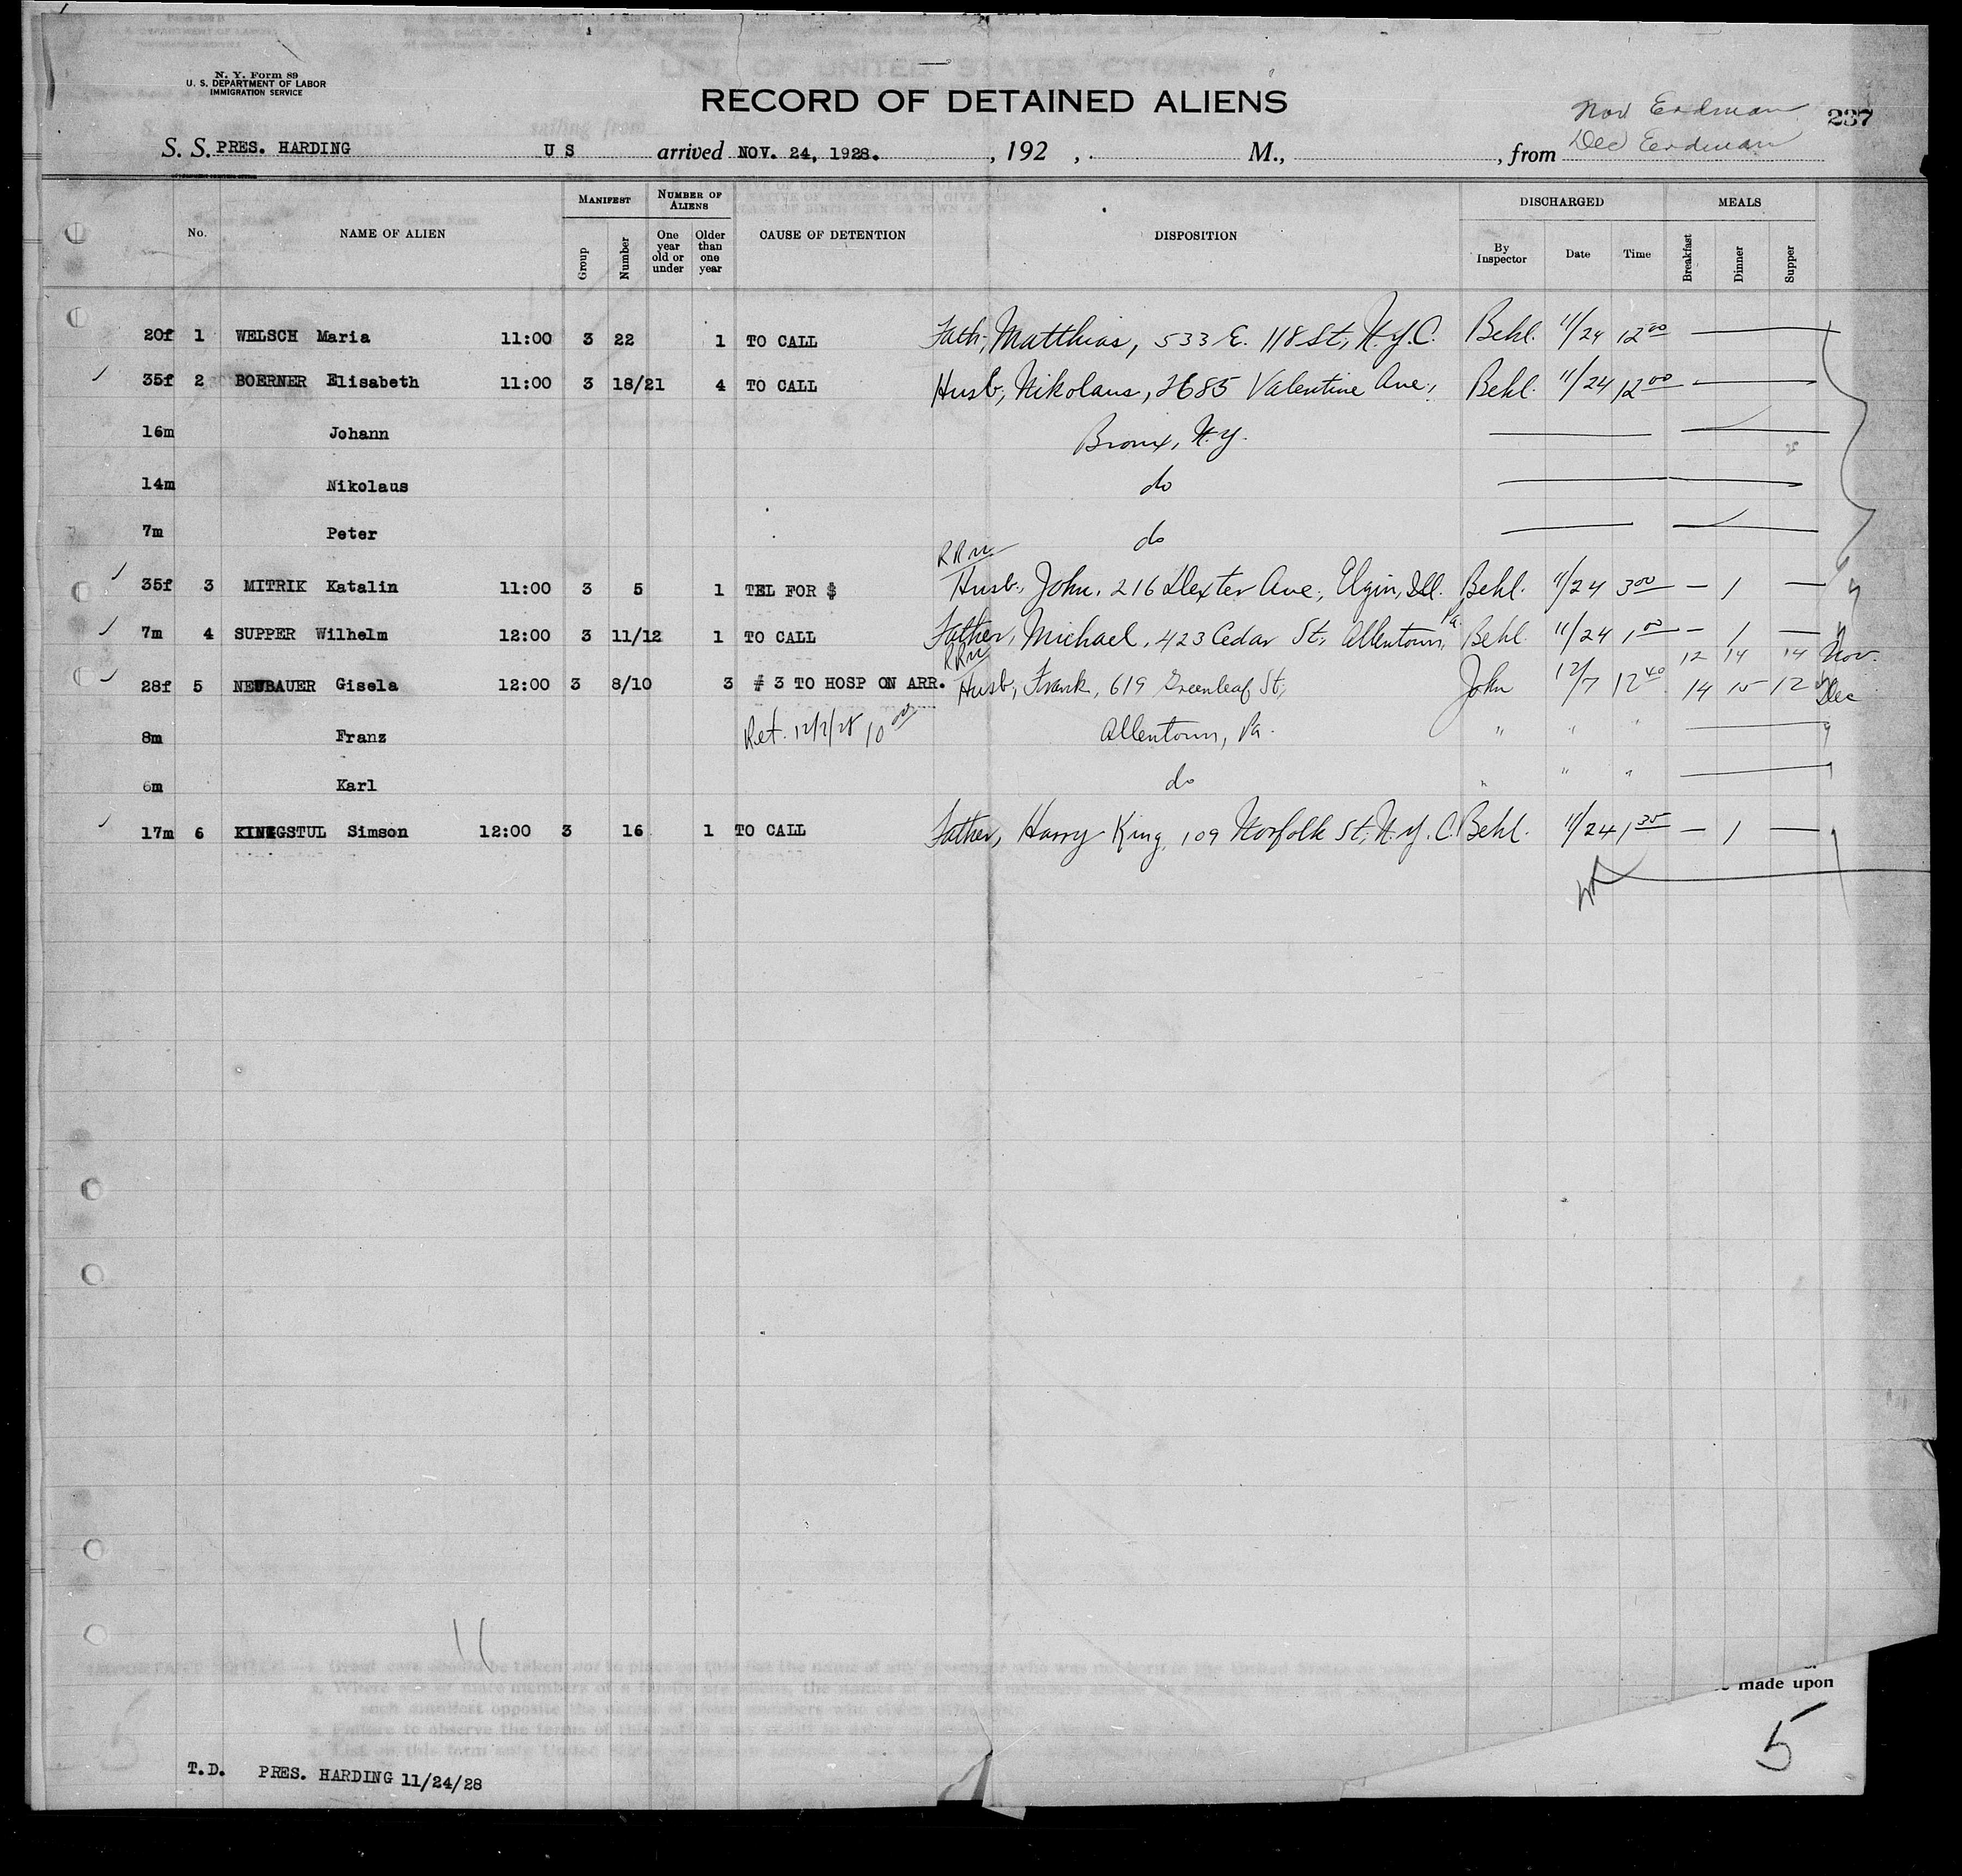 N. Y. Form 89
U. S. DEPARTMENT OF LABOR
IMMIGRATION SERVICE
RECORD OF DETAINED ALIENS
Nov Erdman 237
Dec Erdman
S. S. PRES. HARDING U S arrived NOV. 24, 1928. , 192 , M., , from
No. NAME OF ALIEN MANIFEST Group Number NUMBER OF ALIENS One year old or under Older than one year CAUSE OF DETENTION DISPOSITION DISCHARGED By Inspector Date Time MEALS Breakfast Dinner Supper
20f 1 WELSCH Maria 11:00 3 22 1 TO CALL Fath, Matthias, 533 E. 118 St, N.Y.C. Behl. 11/24 12 00 —
35f 2 BOERNER Elisabeth 11:00 3 18/21 4 TO CALL Husb, Nikolaus, 2685 Valentine Ave, Behl. 11/24 12 00 —
16m Johann Bronx, N.Y.
14m Nikolaus do
7m Peter do
RRW
35f 3 MITRIK Katalin 11:00 3 5 1 TEL FOR $ Husb, John, 216 Dexter Ave, Elgin, Ill. Behl. 11/24 3 00 — 1 —
7m 4 SUPPER Wilhelm 12:00 3 11/12 1 TO CALL Father, Michael, 423 Cedar St, Allentown, Pa. Behl 11/24 1 00 — 1 —
RRW 12 14 14 Nov.
28f 5 NEUBAUER Gisela 12:00 3 8/10 3 # 3 TO HOSP ON ARR. Husb, Frank, 619 Greenleaf St, John 12/7 12 40 14 15 12 Dec
8m Franz Ret. 12/7/28 10 00 Allentown, Pa. " " "
6m Karl do " " "
17m 6 KINIGSTUL Simson 12:00 3 16 1 TO CALL Father, Harry King, 109 Norfolk St, N.Y.C. Behl. 11/24 1 35 — 1 —
11
made upon
5
T.D. PRES. HARDING 11/24/28